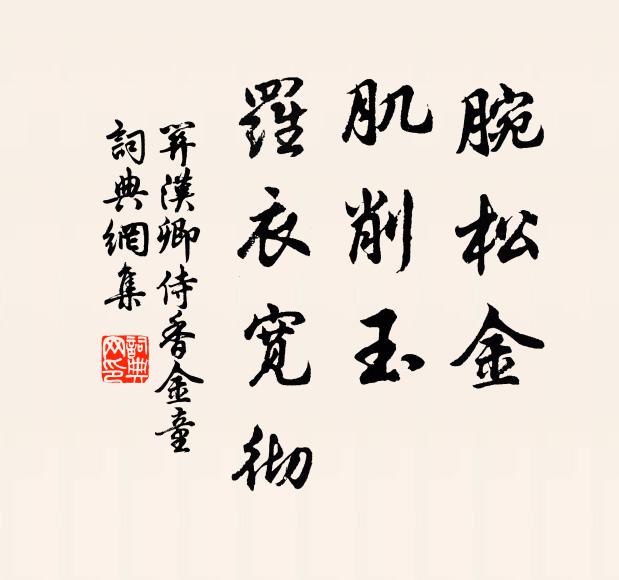 腕松金
肌削玉
羅衣寬彻
关漢卿侍香金童
詞典網集
詞典
网印